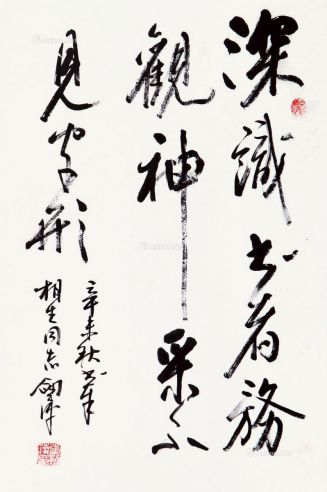 深識书者務
觀神采不
見字形
辛未秋书奉
相生同志